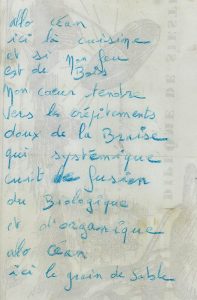 allo céan
ici la cuisine
et si mon feu
est de Bois
Mon coeur tendre
Vers les crépitements
doux de la Braise
qui systémique
cuit de fusion
du Biologique
et d'organique
allo céan
ici le grain de Sable